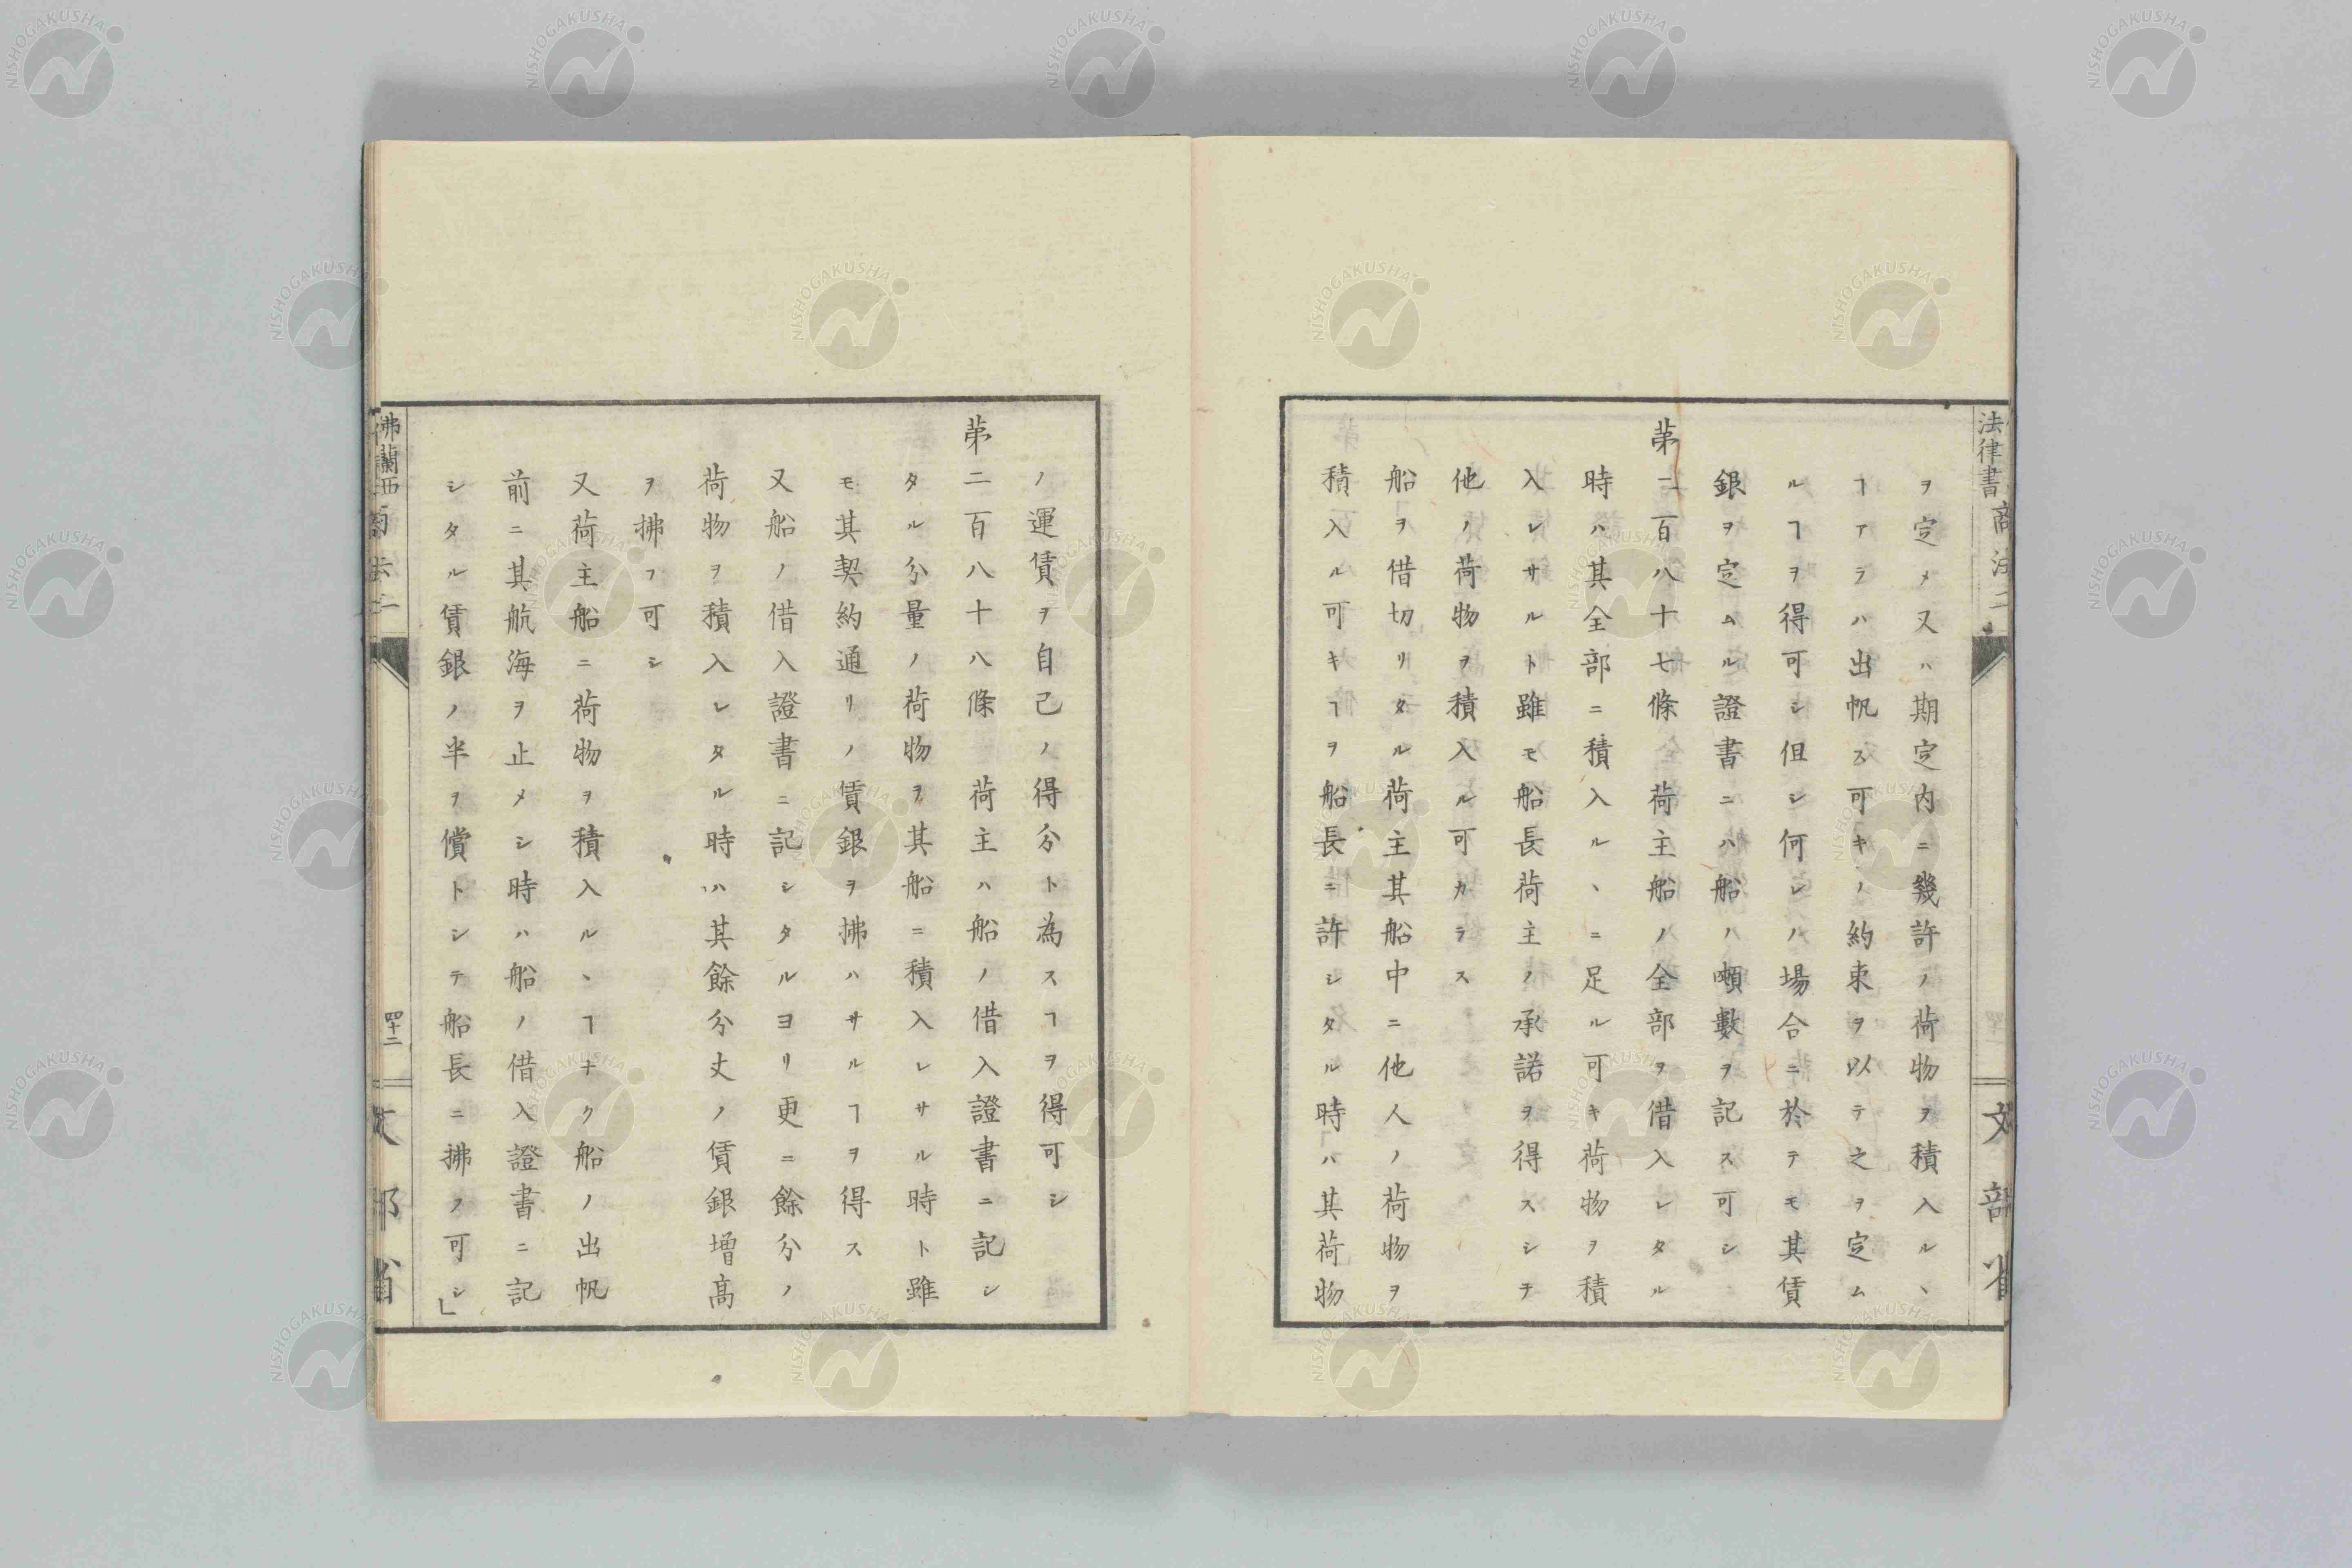 法律書 商法 二
ヲ定メ又ハ期定内ニ幾許ノ荷物ヲ積入ルヽ
ヿアラハ出帆ス可キノ約束ヲ以テ之ヲ定ム
ルヿヲ得可シ但シ何レノ場合ニ於テモ其賃
銀ヲ定ムル證書ニハ船ノ噸數ヲ記ス可シ
苐二百八十七條 荷主船ノ全部ヲ借入レタル
時ハ其全部ニ積入ルヽニ足ル可キ荷物ヲ積
入レサルト雖モ船長荷主ノ承諾ヲ得スシテ
他ノ荷物ヲ積入ル可カラス
船ヲ借切リタル荷主其船中ニ他人ノ荷物ヲ
積入ル可キヿヲ船長ニ許シタル時ハ其荷物
文部省
ノ運賃ヲ自己ノ得分ト為スヿヲ得可シ
苐二百八十八條 荷主ハ船ノ借入證書ニ記シ
タル分量ノ荷物ヲ其船ニ積入レサル時ト雖
モ其契約通リノ賃銀ヲ拂ハサルヿヲ得ス
又船ノ借入證書ニ記シタルヨリ更ニ餘分ノ
荷物ヲ積入レタル時ハ其餘分丈ノ賃銀增髙
ヲ拂フ可シ
又荷主船ニ荷物ヲ積入ルヽヿナク船ノ出帆
前ニ其航海ヲ止メシ時ハ船ノ借入證書ニ記
シタル賃銀ノ半ヲ償トシテ船長ニ拂ノ可シ」
佛蘭西商法 二
四十二
文部省
NISHOGAKUSHA